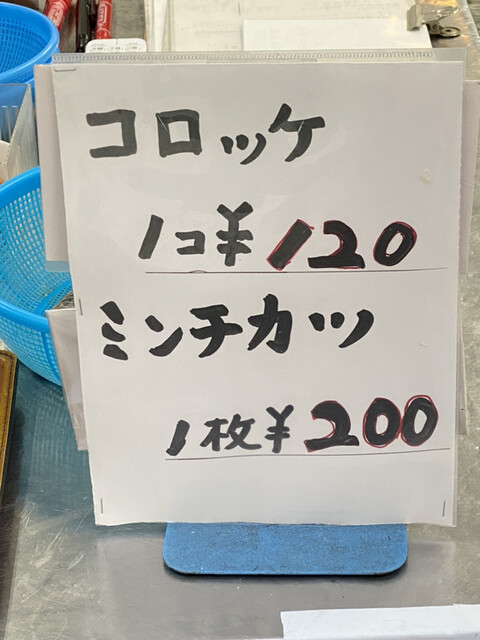 コロッケ
1コ¥120
ミンチカツ
1枚¥200